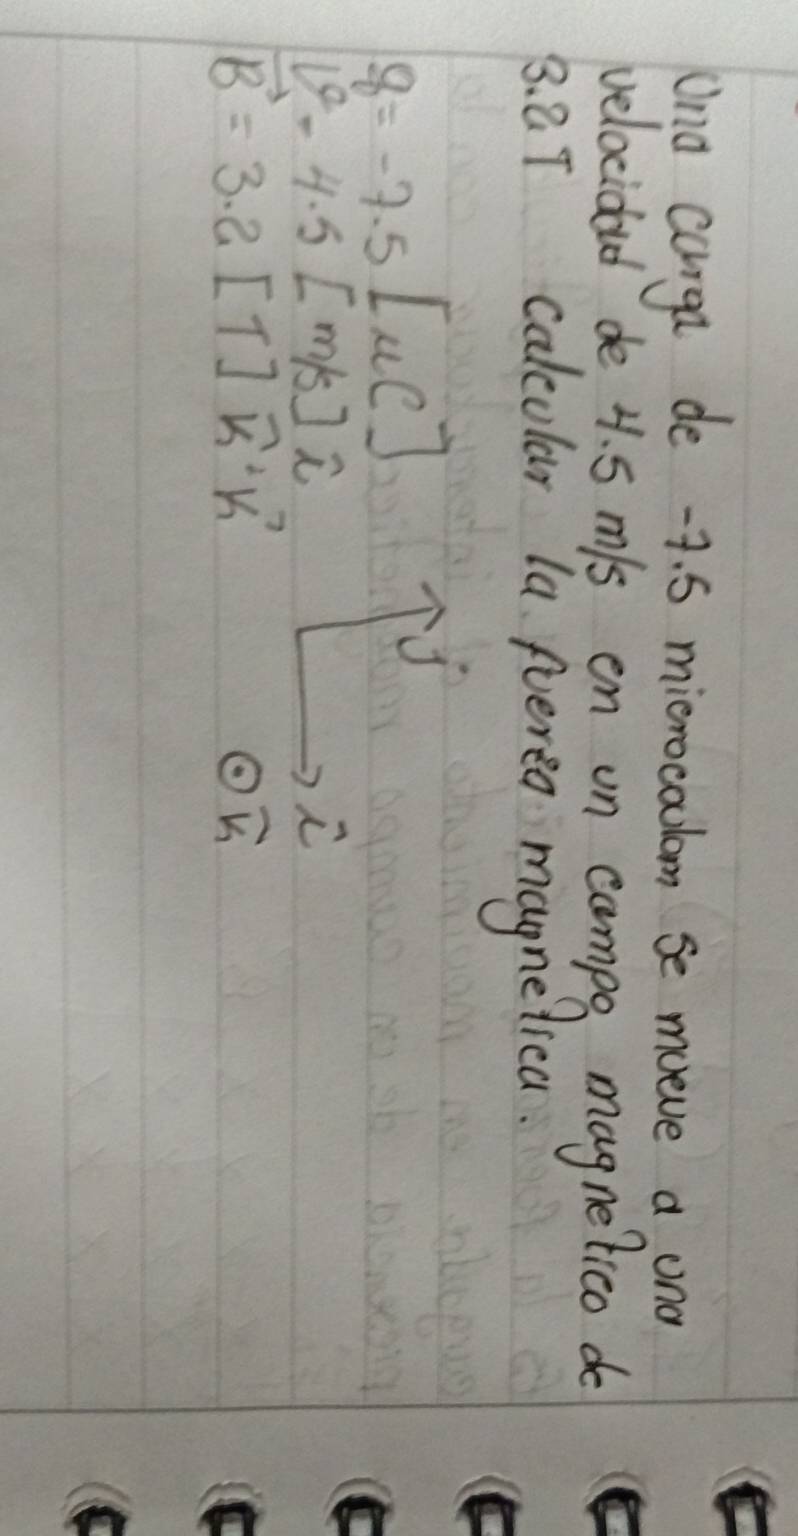 Una carga de -7.5 microcoulom se mueve a una
velocidad de 4.5 m/s en un campo magnetico de
3.2T calcular la fuerza magnetica.
q = -7.5 [μC]
= 4.5 [m/s] î
B = 3.2 [T] k̂
ĵ
î
⊙ k̂